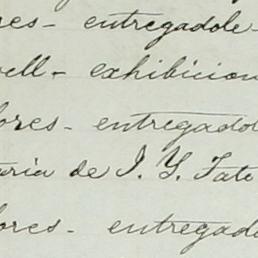 res - entregadole -
ell - exhibicion
ores - entregado
aria de J. Y. Tate
ores - entregado